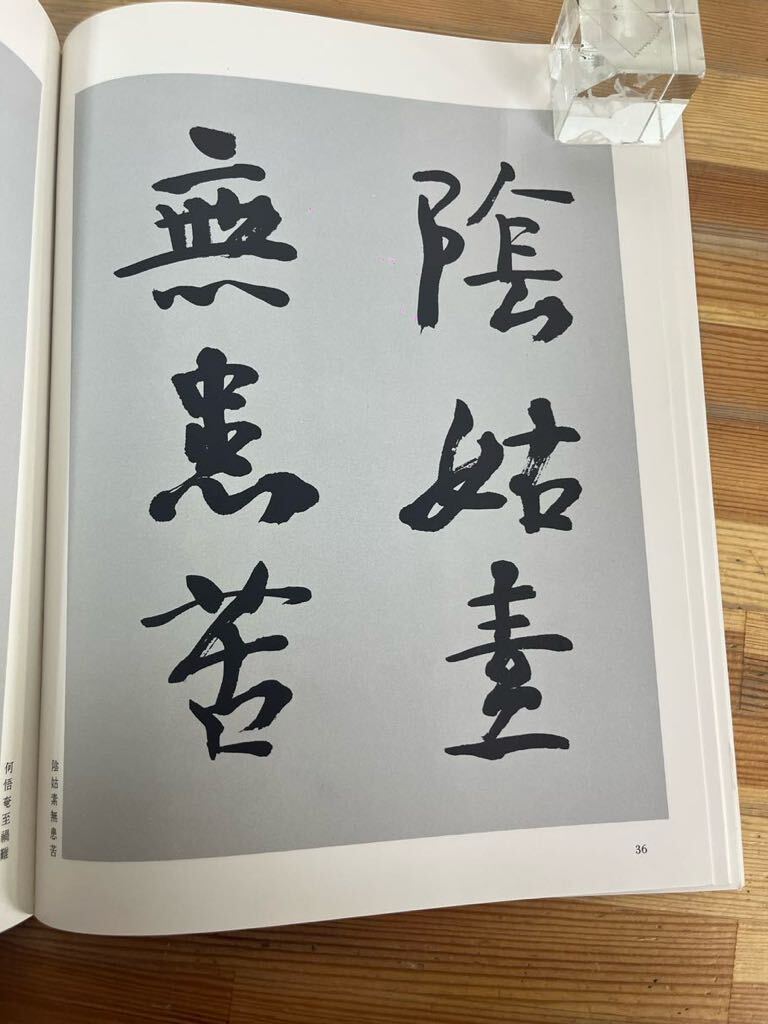 陰姑素
無患苦
陰姑素無患苦
何悟奄至禍難
36